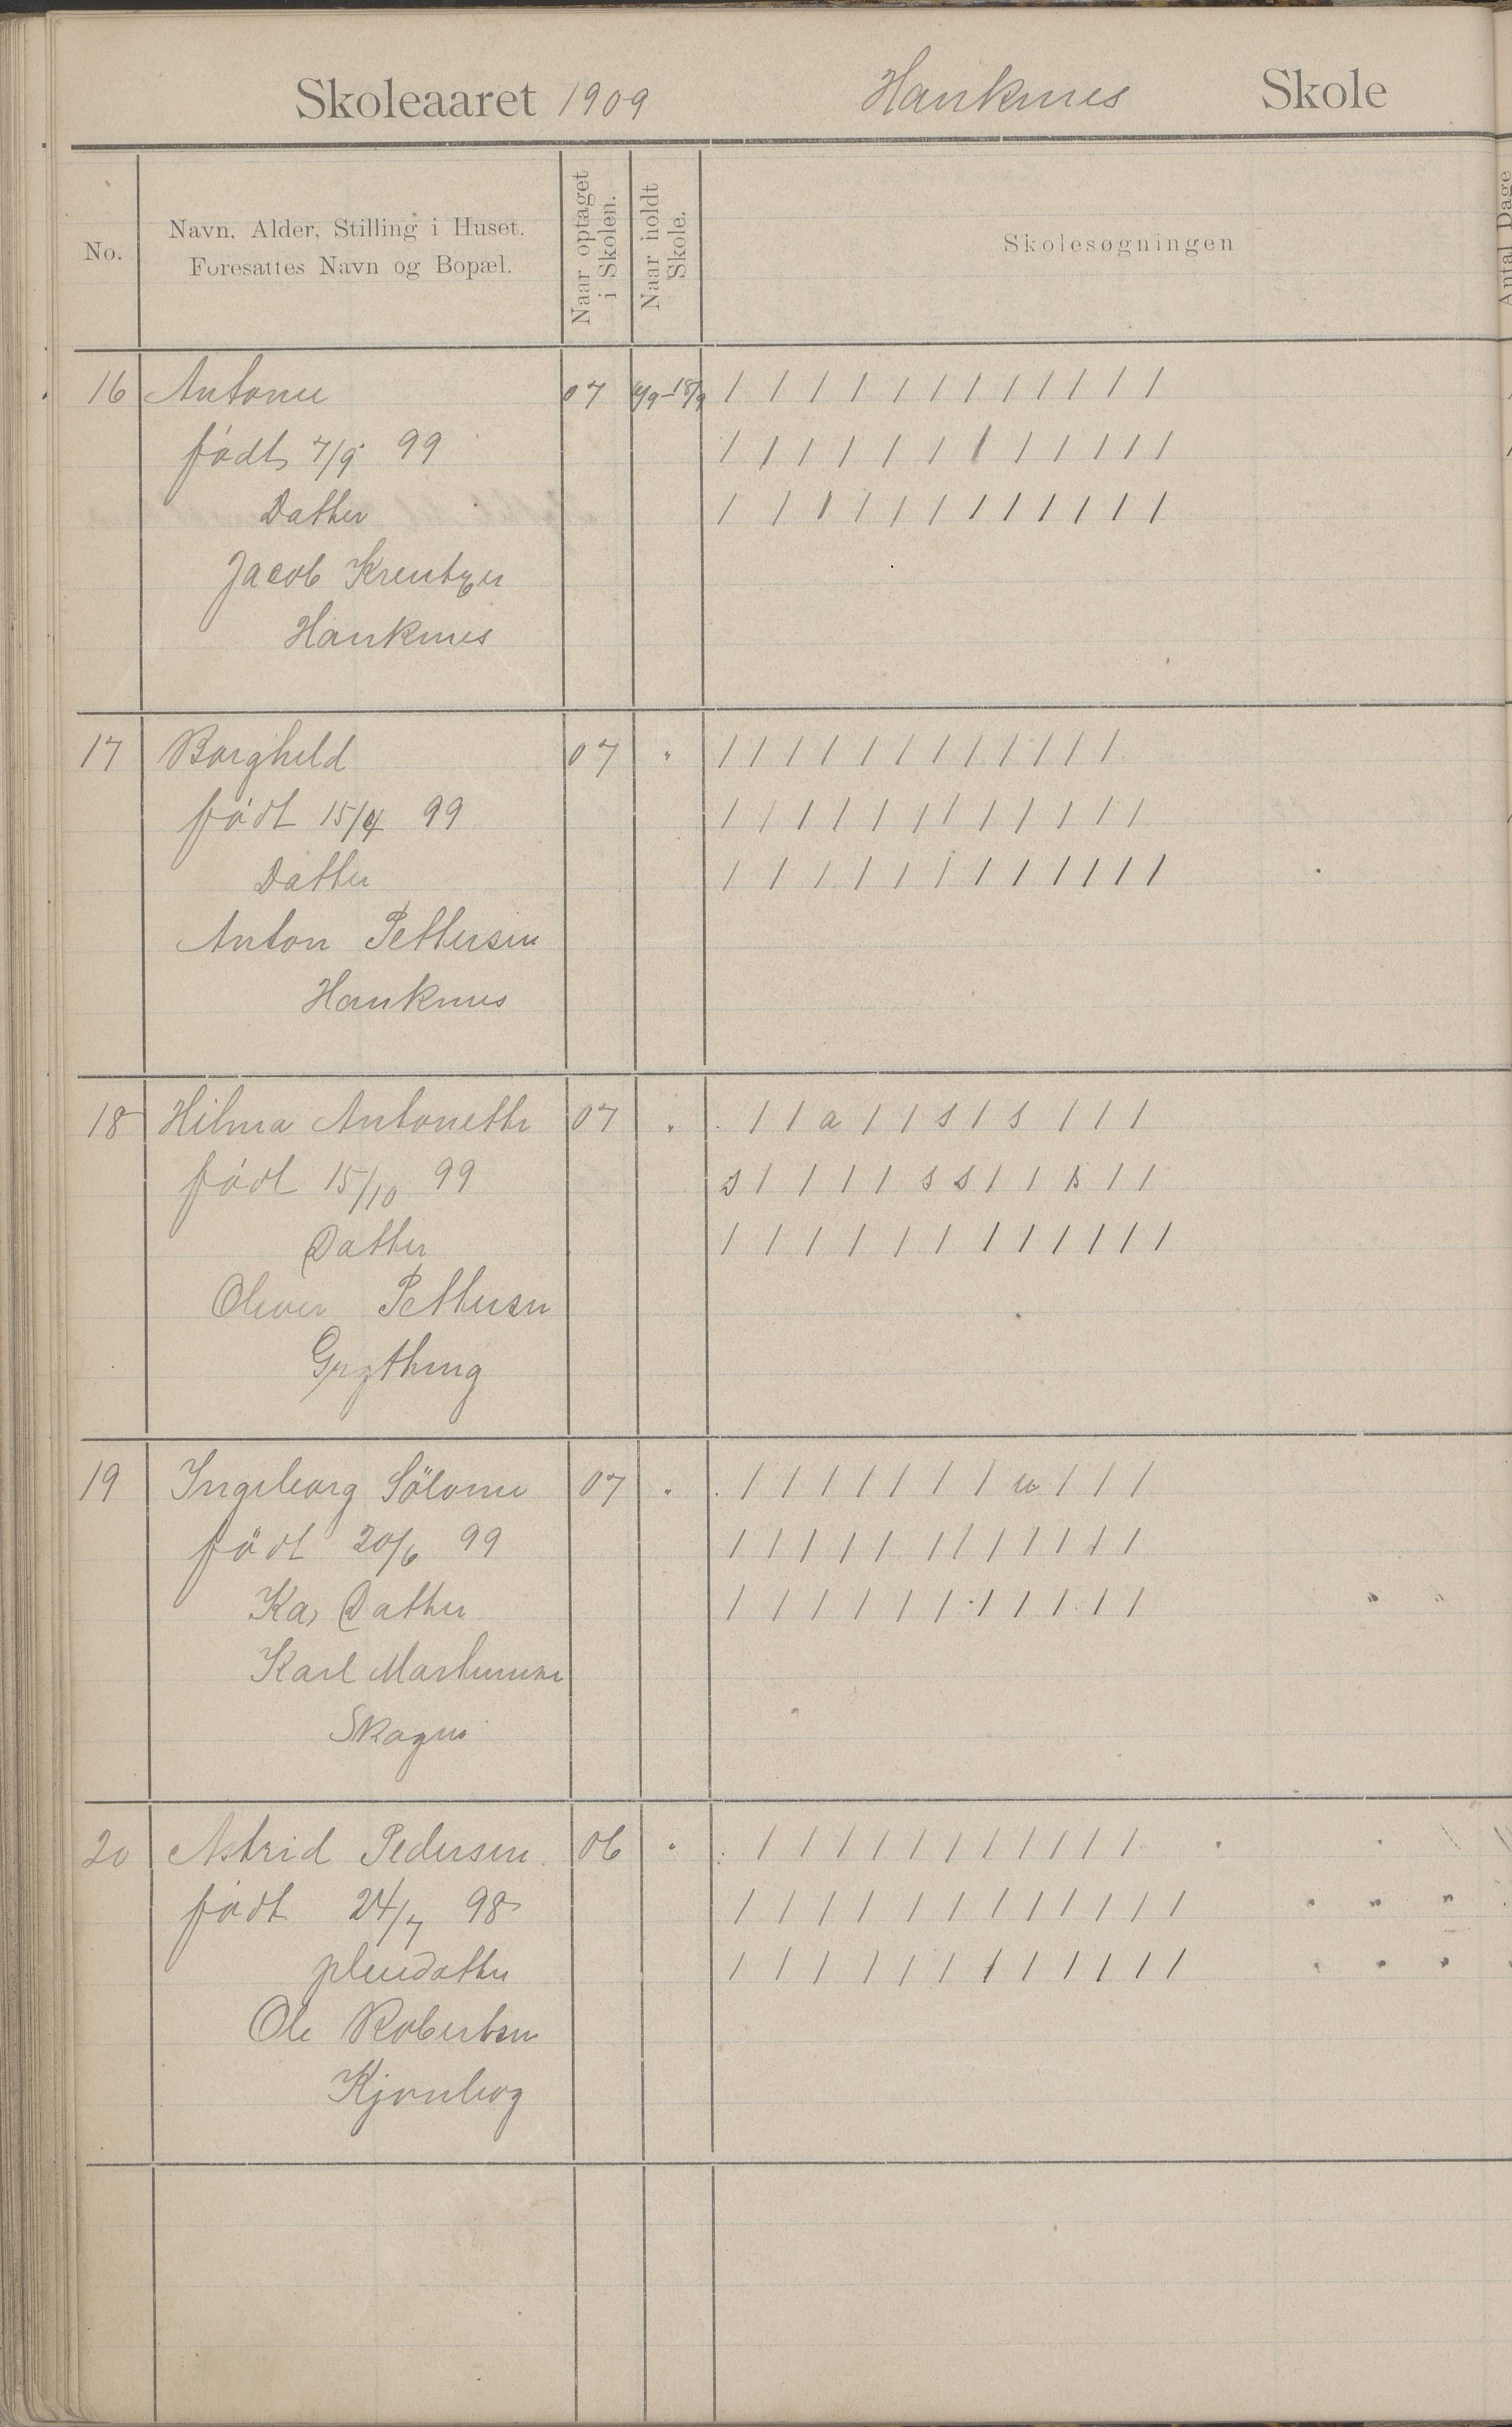 Skoleaaret 1909 Hauknes Skole
No.
Navn, Alder, Stilling i Huset.
Foresattes Navn og Bopæl.
Naar optaget
i Skolen.
Naar holdt
Skole.
Skolesøgningen
Antal Dage
16 Antonie 07 6/9-18/9 / / / / / / / / / / / /
født 7/9 99 / / / / / / / / / / / /
Datter / / / / / / / / / / / /
Jacob Kreutzer
Hauknes
17 Borghild 07 " / / / / / / / / / / / /
født 15/4 99 / / / / / / / / / / / /
Datter / / / / / / / / / / / /
Anton Pettersen
Hauknes
18 Hilma Antonette 07 " / / a / / s / s / / /
født 15/10 99 s / / / / s s / / s / /
Datter / / / / / / / / / / / /
Oliver Pettersen
Grytting
19 Ingeborg Sölome 07 " / / / / / / / u / / /
född 20/6 99 / / / / / / / / / / / /
Ka, Datter / / / / / / / / / / /
Karl Martinusen
Skagen
20 Astrid Pedersen 06 " / / / / / / / / / / /
født 24/7 98 / / / / / / / / / / / /
pleiedatter / / / / / / / / / / / /
Ole Robertsen